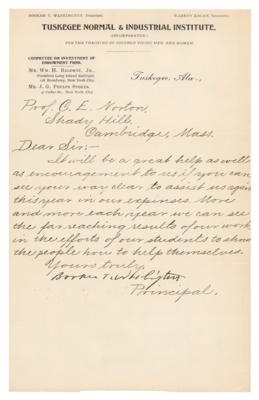 BOOKER T. WASHINGTON, Principal. WARREN LOGAN, Treasurer.
TUSKEGEE NORMAL & INDUSTRIAL INSTITUTE.
(INCORPORATED.)
FOR THE TRAINING OF COLORED YOUNG MEN AND WOMEN.
COMMITTEE ON INVESTMENT OF
ENDOWMENT FUND.
MR. WM. H. BALDWIN, JR.,
President Long Island Railroad,
128 Broadway, New York City.
MR. J. G. PHELPS STOKES,
47 Cedar St., New York City.
Tuskegee, Ala.,
Prof. C. E. Norton,
Shady Hill,
Cambridge, Mass.
Dear Sir:-
It will be a great help as well
as encouragement to us if you can
see your way clear to assist us again
this year in our expenses. More
and more each year we can see
the far reaching results of our work
in the efforts of our students to show
the people how to help themselves.
Yours truly,
Booker T. Washington
Principal.